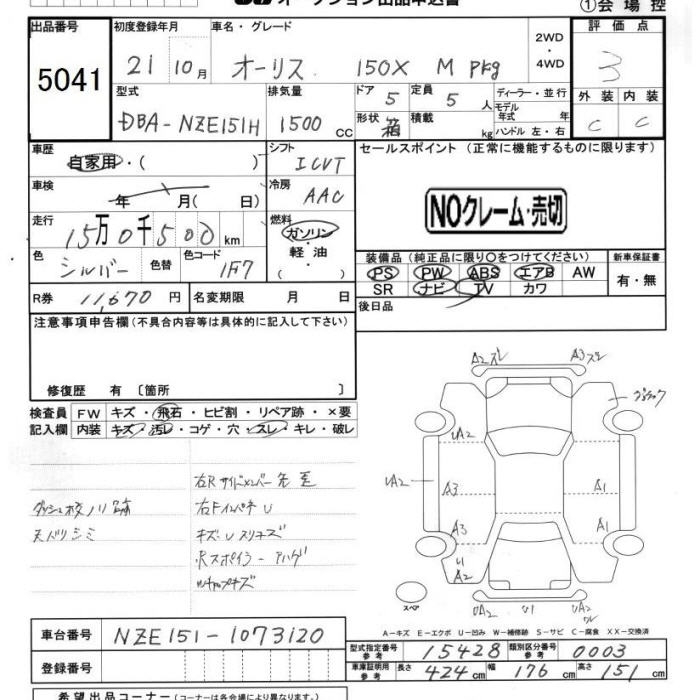 オークション出品申込書
①会場控
出品番号 初度登録年月 車名・グレード 2WD・4WD 評価点
5041 21 10月 オーリス 150X M Pkg 3
型式 排気量 ドア 5 定員 5人 ディーラー・並行 外装 内装
DBA-NZE151H 1500cc 形状 箱 積載 kg モデル年式 年 ハンドル 左・右 C C
車歴 シフト セールスポイント (正常に機能するものに限ります)
自家用・( ) ICVT
車検 年 月( 日) 冷房 AAC
NOクレーム・売切
走行 15万0千500km 燃料 ガソリン・軽油・( )
色 シルバー 色替 色コード 1F7
装備品 (純正品に限り○をつけてください) 新車保証書
PS PW ABS エアB AW 有・無
SR ナビ TV カワ
R券 11,670円 名変期限 月 日 後日品
注意事項申告欄 (不具合内容等は具体的に記入して下さい)
修復歴 有 〔箇所 〕
検査員 FW キズ・飛石・ヒビ割・リペア跡・×要
記入欄 内装 キズ・汚レ・コゲ・穴・スレ・キレ・破レ
右Rサイドメンバー先歪
ダッシュ校ノリ跡 右FインパネU
天バリシミ キズ・Uスリキズ
Rスポイラーハゲ
A2スレ A3スレ
UA2
UA2
A3 A1
A3 A1
A2
スペア UA2 U1 UA2
A-キズ E-エクボ U-凹み W-補修跡 S-サビ C-腐食 XX-交換済
車台番号 NZE151-1073120 型式指定番号 参考 15428 類別区分番号 参考 0003
登録番号 車庫証明用 参考 長さ 424cm 幅 176cm 高さ 151cm
希望出品コーナー (コーナーは各会場により異なります。)